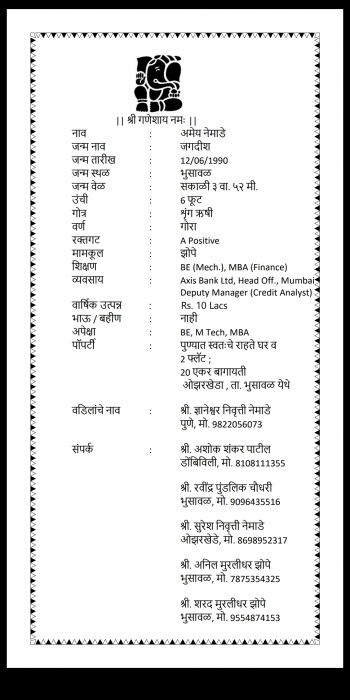 || श्री गणेशाय नमः ||
नाव : अमेय नेमाडे
जन्म नाव : जगदीश
जन्म तारीख : 12/06/1990
जन्म स्थळ : भुसावळ
जन्म वेळ : सकाळी ३ वा. ५२ मी.
उंची : 6 फूट
गोत्र : शृंग ऋषी
वर्ण : गोरा
रक्तगट : A Positive
मामकूल : झोपे
शिक्षण : BE (Mech.), MBA (Finance)
व्यवसाय : Axis Bank Ltd, Head Off., Mumbai
Deputy Manager (Credit Analyst)
वार्षिक उत्पन्न : Rs. 10 Lacs
भाऊ / बहीण : नाही
अपेक्षा : BE, M Tech, MBA
पॉपर्टी : पुण्यात स्वतःचे राहते घर व
2 फ्लॅट ;
20 एकर बागायती
ओझरखेडा , ता. भुसावळ येथे
वडिलांचे नाव : श्री. ज्ञानेश्वर निवृत्ती नेमाडे
पुणे, मो. 9822056073
संपर्क : श्री. अशोक शंकर पाटील
डोंबिविली, मो. 8108111355
श्री. रवींद्र पुंडलिक चौधरी
भुसावळ, मो. 9096435516
श्री. सुरेश निवृत्ती नेमाडे
ओझरखेडे, मो. 8698952317
श्री. अनिल मुरलीधर झोपे
भुसावळ, मो. 7875354325
श्री. शरद मुरलीधर झोपे
भुसावळ, मो. 9554874153